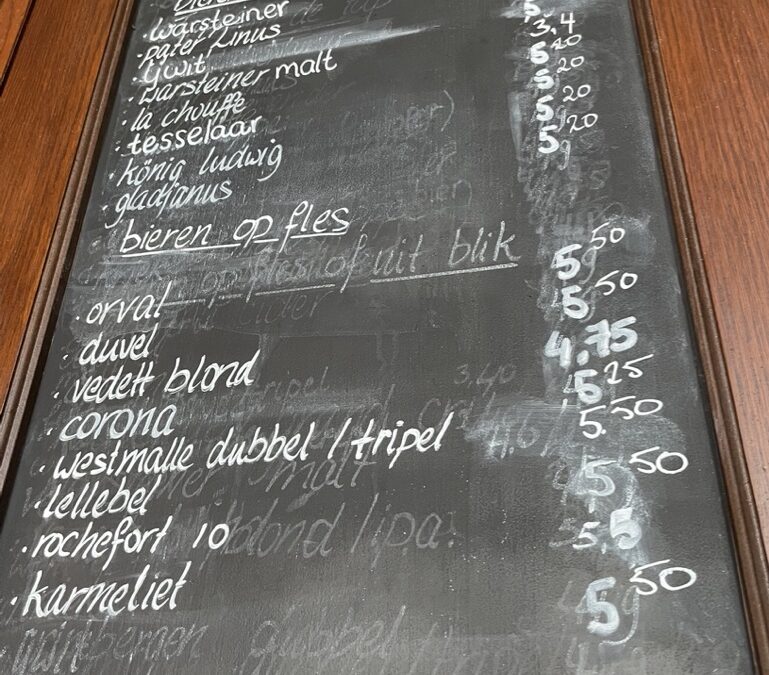 warsteiner
· pater linus
· ijwit 5
· warsteiner malt 3.4
· la chouffe 5 20
· tesselaar 5 20
· könig ludwig 5 20
· gladjanus 5 20
bieren op fles
op fles of uit blik
· orval 5 50
· duvel 5 50
· vedett blond 4.75
· corona 5 25
· westmalle dubbel / tripel 5.50
· lellebel 5 50
· rochefort 10 5.5
· karmeliet 5 50
grimbergen dubbel